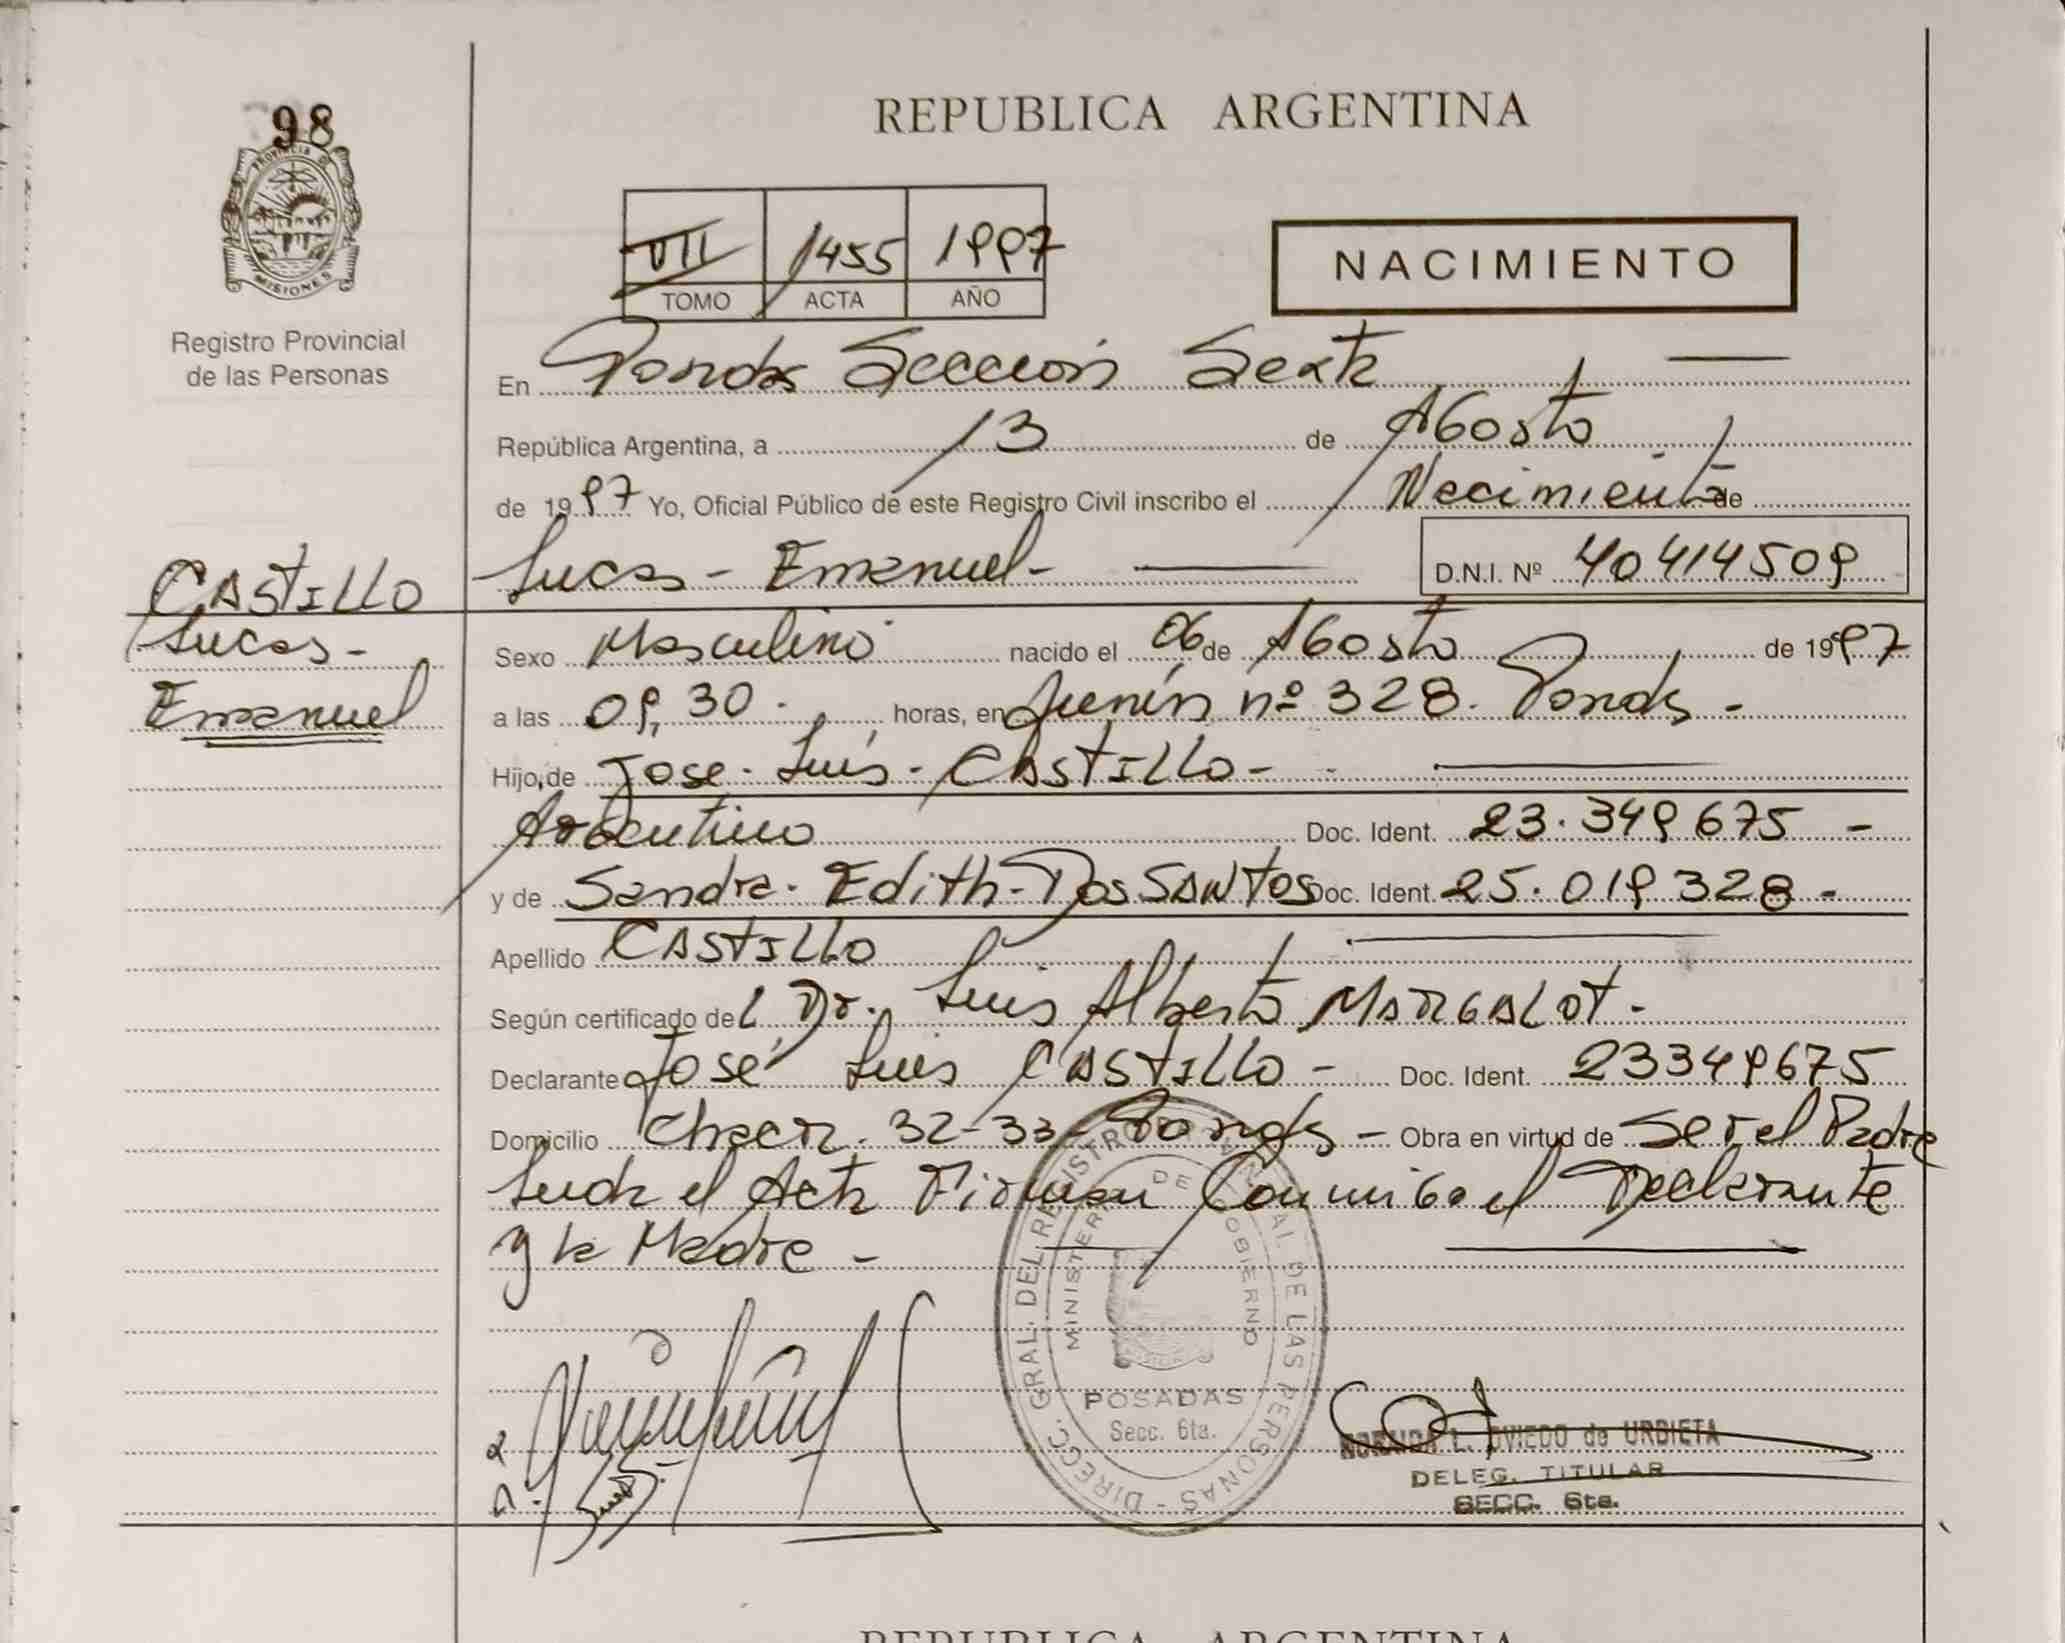 98
REPUBLICA ARGENTINA
PROVINCIA DE
MISIONES
Registro Provincial
de las Personas
VII 1455 1997
TOMO ACTA AÑO
NACIMIENTO
En Posadas Sección Sexta
República Argentina, a 13 de Agosto
de 1997 Yo, Oficial Público de este Registro Civil inscribo el Nacimiento de
Lucas - Emanuel - D.N.I. Nº 40414509
CASTILLO
Lucas -
Emanuel
Sexo Masculino nacido el 06 de Agosto de 1997
a las 09,30 . horas, en Junín nº 328. Posadas -
Hijo, de Jose - Luis - CASTILLO -
Argentino Doc. Ident. 23.349675 -
y de Sandra - Edith - Dos SANTOS Doc. Ident. 25.019328 -
Apellido CASTILLO
Según certificado del Dr. Luis Alberto MARGALOT -
Declarante José Luis CASTILLO - Doc. Ident. 23349675
Domicilio Chacra 32-33 - Posadas - Obra en virtud de Ser el Padre
Leida el Acta Firman Conmigo el Declarante
y la Madre -
DIRECC. GRAL. DEL REGISTRO PROVINCIAL DE LAS PERSONAS -
MINISTERIO DE GOBIERNO
POSADAS
Secc. 6ta.
L. OVIEDO de URBIETA
DELEG. TITULAR
SECC. 6ta.
REPUBLICA ARGENTINA